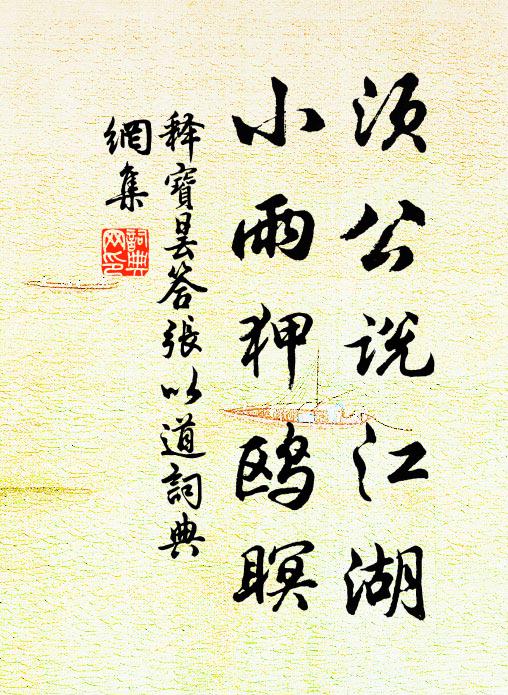 须公说江湖
小雨狎鸥暝
释寳昙答张以道詞典
網集
詞典
网印